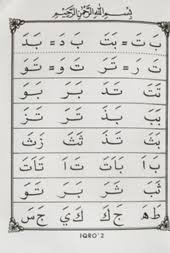 بِسْمِ اللهِ الرَّحْمٰنِ الرَّحِيْمِ
بَ تَ = بَتَ بَ دَ = بَدَ
تَ رَ = تَرَ تَ وَ = تَوَ
تَتَ تَدَ بَرَ بَوَ
بَبَ بَذَ تَرَ تَزَ
بَثَ تَذَ ثَثَ زَثَ
بَ اَ بَاتَ تَ اَ تَاتَ
ثَبَ ثَرَ بَرَ تَوَ
طٰهٰ جَ كَ كَ يَ جَ سَ
IQRO' 2